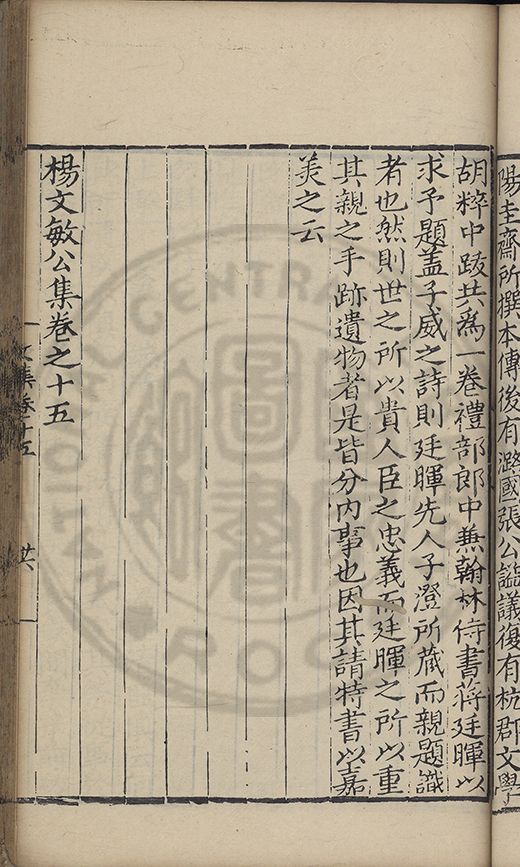 陽圭齋所撰本傳後有潞國張公謚議復有杭郡文學
胡粹中跋共爲一卷禮部郎中兼翰林侍書蔣廷暉以
求予題蓋子威之詩則廷暉先人子澄所蔵而親題識
者也然則世之所以貴人臣之忠義而廷暉之所以重
其親之手跡遺物者是皆分内事也因其請特書以嘉
羙之云
楊文敏公集卷之十五
文集卷十五
廿六